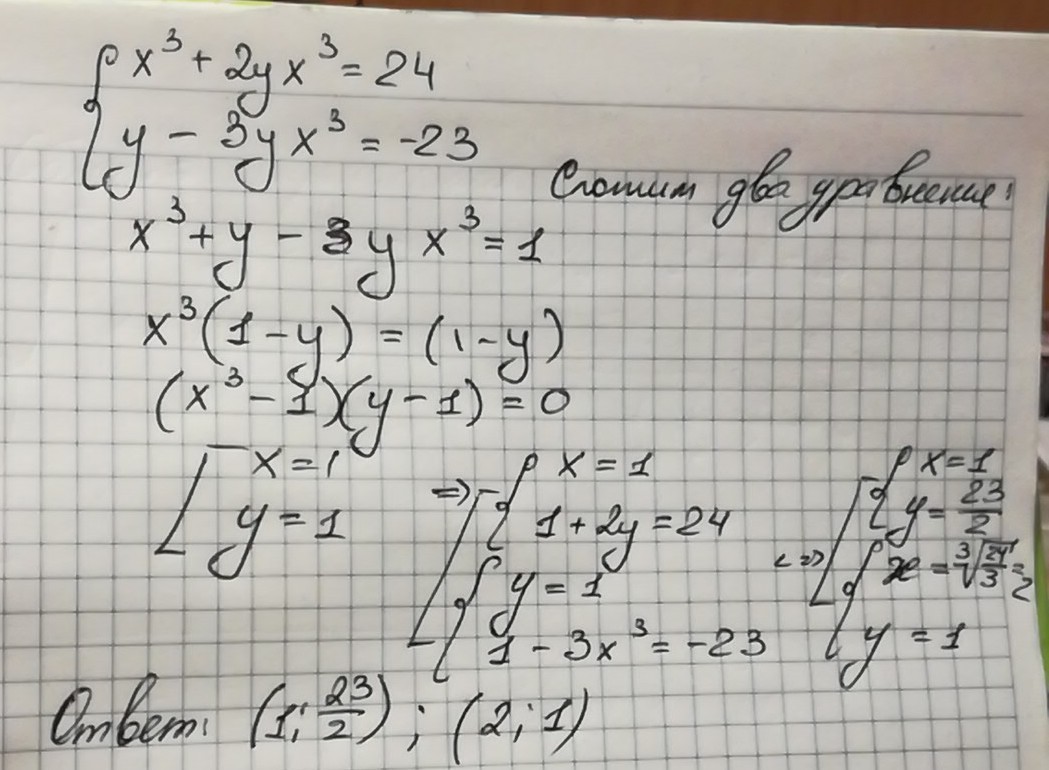 x³ + 2yx³ = 24
y - 3yx³ = -23
Сложим два уравнения:
x³ + y - 3yx³ = 1
x³(1-y) = (1-y)
(x³ - 1)(y - 1) = 0
x = 1
y = 1
=> x = 1
1 + 2y = 24
y = 1
1 - 3x³ = -23
<=> x = 1
y = 23/2
x = ∛(24/3) = 2
y = 1
Ответ: (1; 23/2); (2; 1)